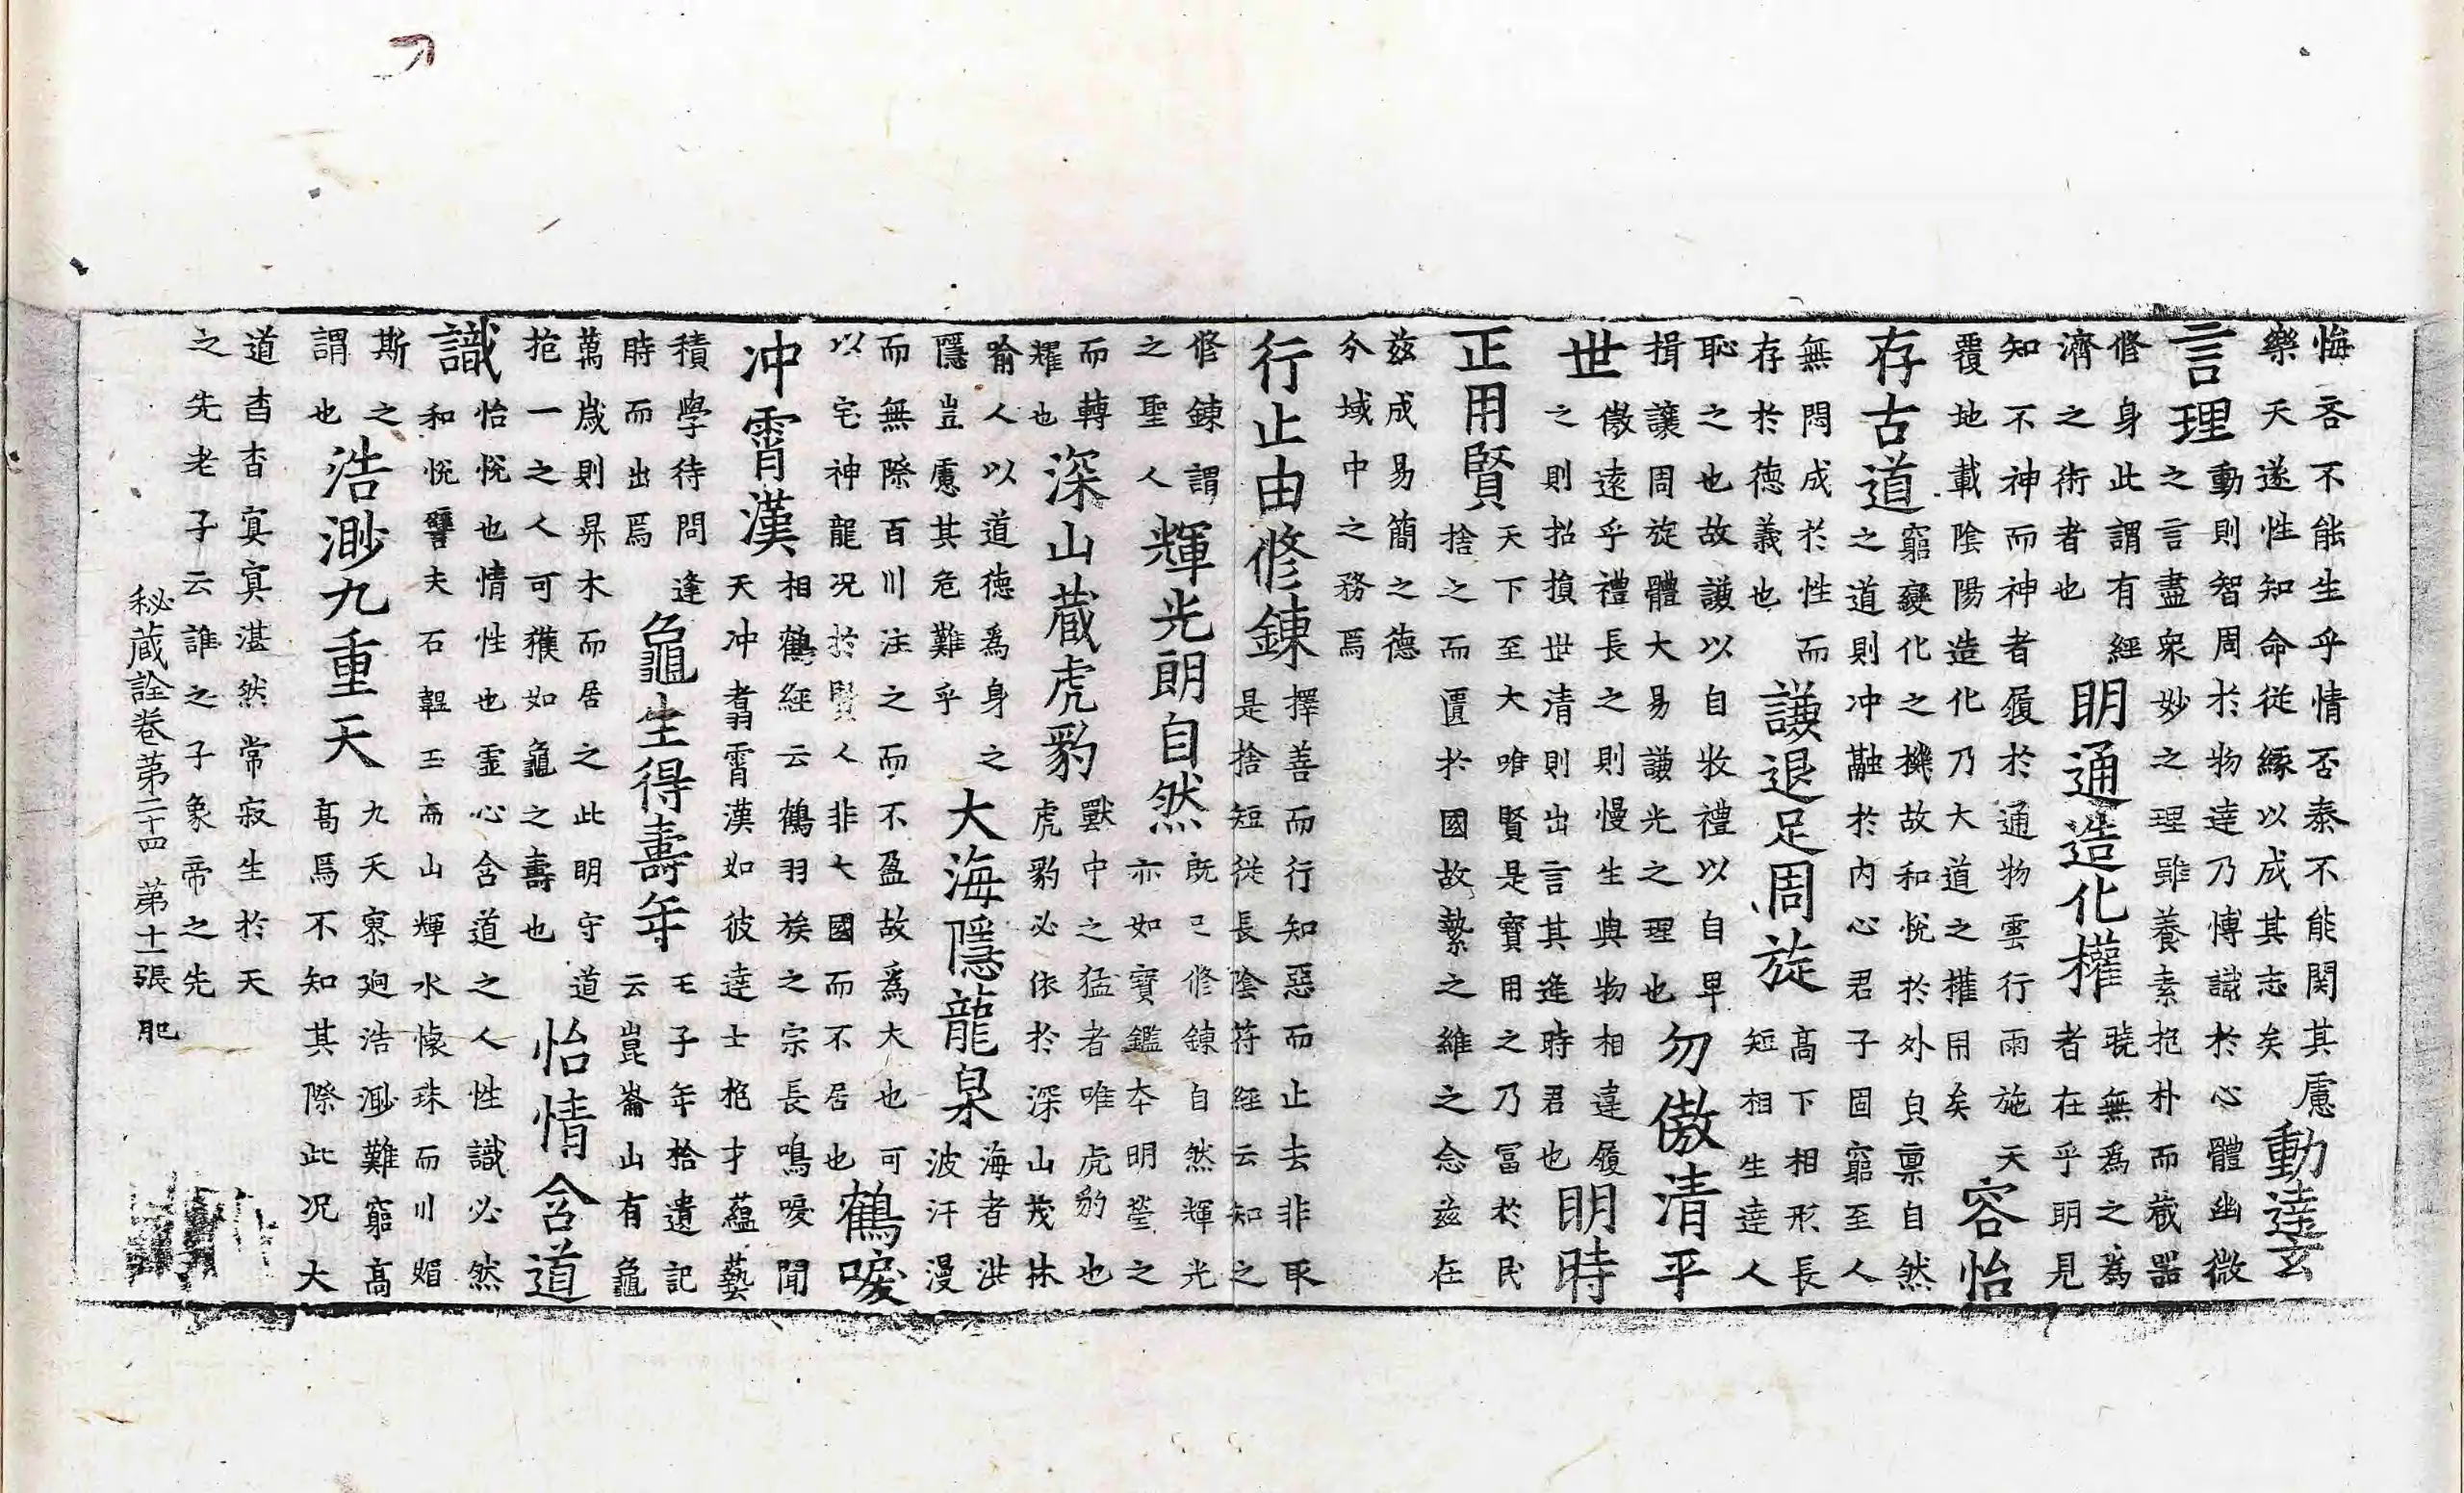 悔吝不能生乎情否泰不能関其慮
樂天遂性知命從緣以成其志矣
動達玄
言理
動則智周於物達乃愽識於心體幽微
之言盡衆妙之理雖養素抱朴而蔵器
修身此謂有經
濟之術者也
明通造化權
曉無為之為
者在乎明見
知不神而神者履於通物雲行雨施天
覆地載陰陽造化乃大道之權用矣
容怡
存古道
窮變化之機故和悅於外貞稟自然
之道則冲融於内心君子固窮至人
無悶成於性而
存於德義也
謙退足周旋
高下相形長
短相生達人
恥之也故謙以自收禮以自卑
揖讓周旋體大易謙光之理也
勿傲清平
世
傲遠乎禮長之則慢生與物相違履
之則招損世清則出言其進時君也
明時
正用賢
天下至大唯賢是寳用之乃冨於民
捨之而匱於國故縶之維之念兹在
兹成易簡之德
今域中之務焉
行止由修鍊
擇善而行知惡而止去非取
是捨短從長陰符經云知之
修鍊謂
之聖人
輝光朗自然
旣已修鍊自然輝光
亦如寳鑑本明瑩之
而轉
耀也
深山蔵虎豹
獸中之猛者唯虎豹也
虎豹必依於深山茂林
喻人以道德為身之
隱豈慮其危難乎
大海隱龍泉
海者洪
波汗漫
而無際百川注之而不盈故為大也可
以宅神龍况於賢人非大國而不居也
鶴唳
冲霄漢
相鶴經云鶴羽族之宗長鳴唳聞
天冲翥霄漢如彼達士抱才蘊藝
積學待問逢
時而出焉
龜生得壽年
王子年拾遺記
云崑崙山有龜
萬歲則昇木而居之此明守道
抱一之人可獲如龜之壽也
怡情含道
識
怡悅也情性也靈心含道之人性識必然
和悅譬夫石韞玉而山輝水懷珠而川媚
斯之
謂也
浩渺九重天
九天寥逈浩渺難窮高
高焉不知其際此况大
道杳杳冥冥湛然常寂生於天
之先老子云誰之子象帝之先
秘蔵詮卷第二十四 第十二張 肥